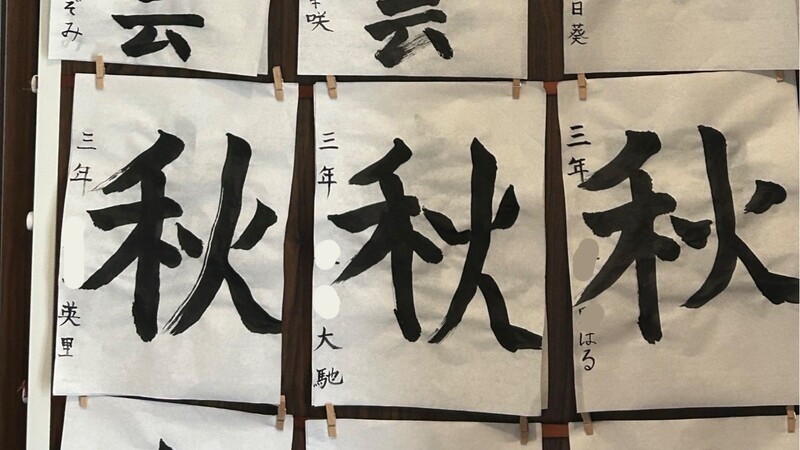 ぞみ
云
咲
云
日葵
秋
三年
英里
秋
三年
大馳
秋
三年
はる